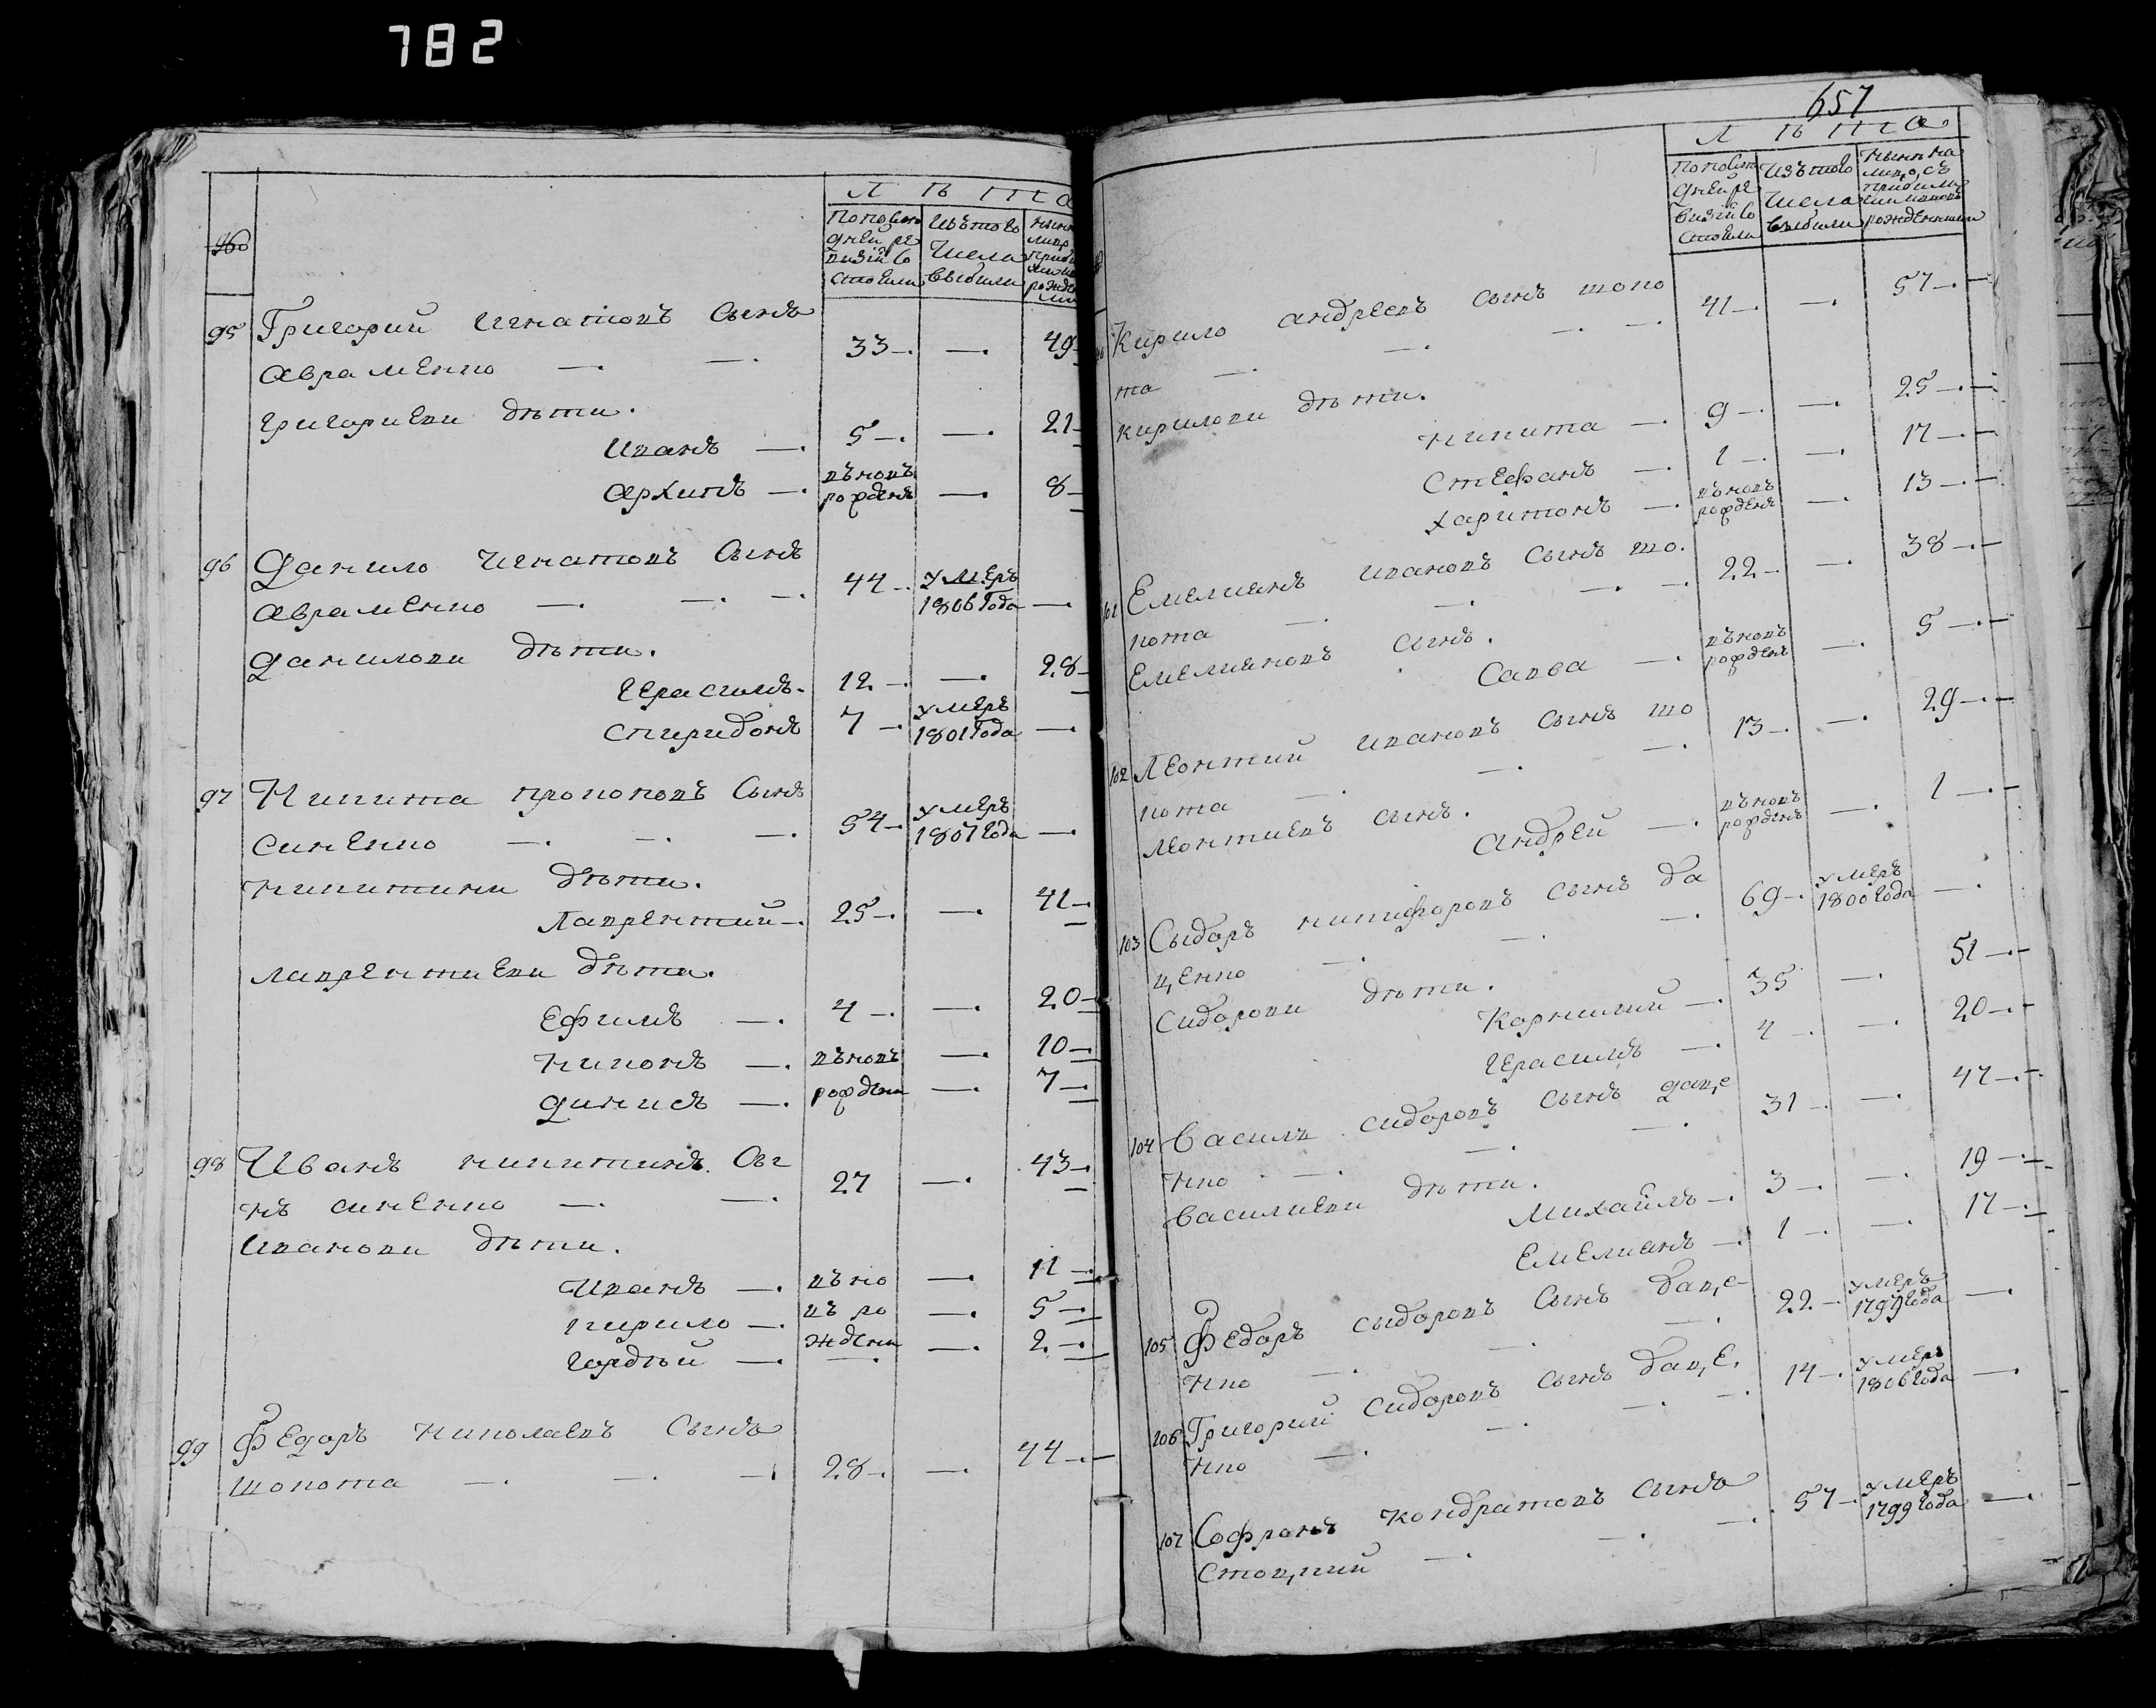 782
Л ѣ та
По послѣ
дней ре
визій со
стояли
Изъ того
числа
выбыли
95 Григорий Игнатовъ Сынъ
Авраменко — — 33 — — 49
Григориеви дѣти.
Иванъ — 5 — — 21
Архипъ — въновъ рожденъ — 8
96 Данило Игнатовъ Сынъ
Авраменко — — — 44 — умеръ 1806 года —
Данилови дѣти.
Герасимъ. 12 — — 28
Спиридонъ 7 — умеръ 1801 года —
97 Никита Прокоповъ Сынъ
Синенко — — — 54 — умеръ 1807 года —
Никитини дѣти.
Лаврентий — 25 — — 41 —
Лаврентиеви дѣти.
Ефимъ — 4 — — 20 —
Никонъ — въновъ — 10 —
Динисъ — рождени — 7 —
98 Иванъ Никитинъ Сы
нъ Синенко — — 27 — 43 —
Иванови дѣти.
Иванъ — въно — 11 —
Кирило — въ ро — 5 —
Гордѣй — ждени — 2 —
99 Федоръ Николаевъ Сынъ
Шопота — — — 28 — — 44 —
657
Л ѣ та
По послѣ
дней ре
визий со
стояли
Изъ того
числа
выбыли
Нынѣ на
лицо, съ
прибили
рожденными
Кирило Андреевъ Сынъ Шопо
та — — — — 41 — — 57 —
Кирилови дѣти.
Никита — 9 — — 25 —
Стефанъ — 1 — — 17 —
Харитонъ — въновъ рожденъ — 13 —
101 Емелиянъ Ивановъ Сынъ Шо.
пота — — — — 22 — — 38 —
Емелияновъ сынъ.
Савва — въновъ рожденъ — 5 —
102 Леонтий Ивановъ Сынъ Шо
пота — — — 13 — — 29 —
Леонтиевъ сынъ.
Андрей — въновъ рожденъ — 1 —
103 Сыдоръ Никифоровъ Сынъ Да
ценко — — — 69 — умеръ 1800 года —
Сидорови дѣти.
Корнилий — 35 — 51 —
Герасимъ — 4 — — 20 —
104 Василь Сидоровъ Сынъ Даце
нко — — — 31 — — 47 —
Василиеви дѣти.
Михайлъ — 3 — — 19 —
Емелианъ — 1 — — 17 —
105 Федоръ Сыдоровъ Сынъ Даце
нко — — — 22 — умеръ 1799 года —
106 Григорий Сидоровъ Сынъ Даце.
нко — — — — 14 — умеръ 1806 года —
107 Софронъ Кондратовъ Сынъ
Стоцкий — — — 57 — умеръ 1799 года —